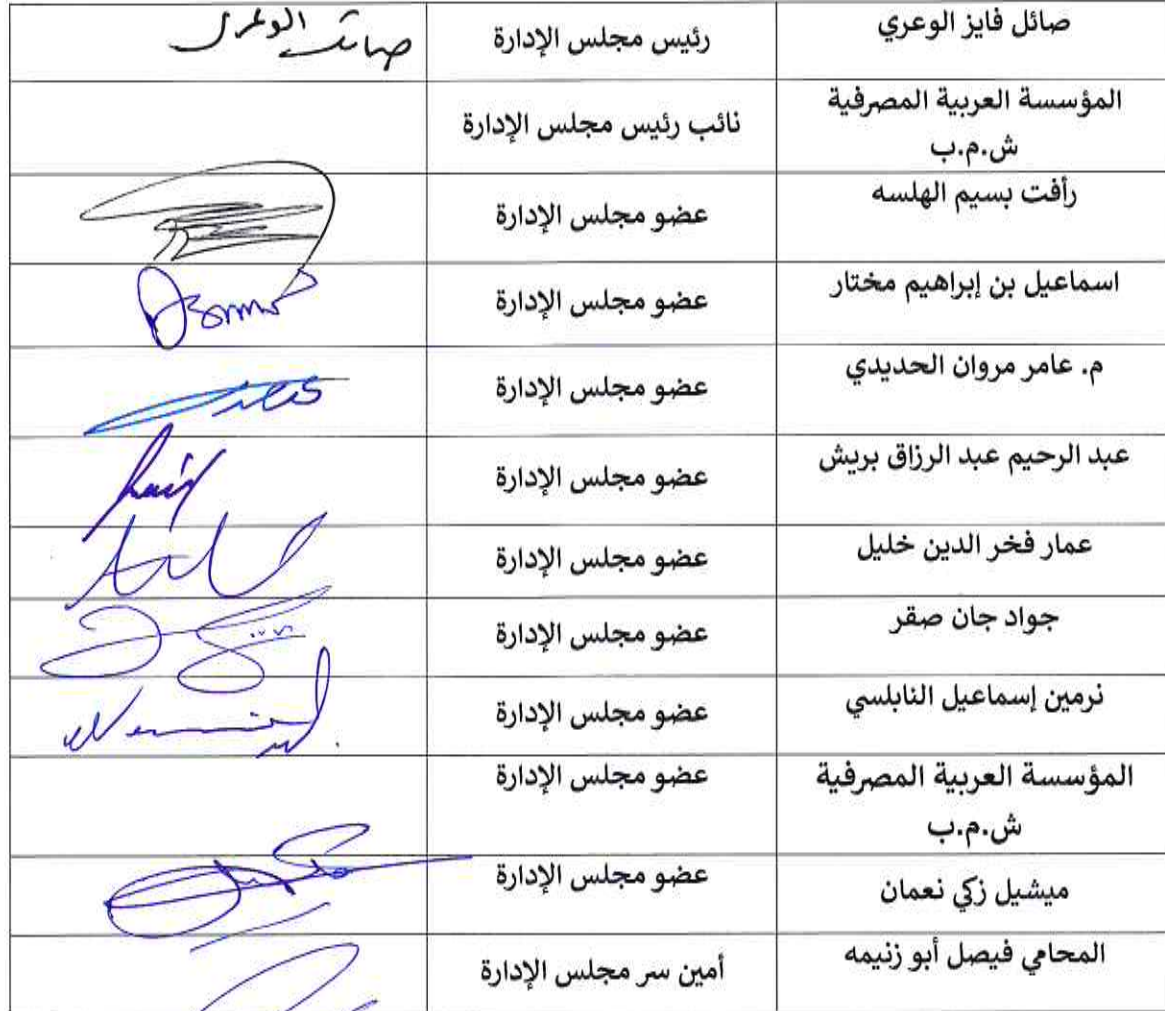 صائل فايز الوعري
رئيس مجلس الإدارة
صائل الوعري
المؤسسة العربية المصرفية
ش.م.ب
نائب رئيس مجلس الإدارة
رأفت بسيم الهلسه
عضو مجلس الإدارة
اسماعيل بن إبراهيم مختار
عضو مجلس الإدارة
م. عامر مروان الحديدي
عضو مجلس الإدارة
عبد الرحيم عبد الرزاق بريش
عضو مجلس الإدارة
عمار فخر الدين خليل
عضو مجلس الإدارة
جواد جان صقر
عضو مجلس الإدارة
نرمين إسماعيل النابلسي
عضو مجلس الإدارة
المؤسسة العربية المصرفية
ش.م.ب
عضو مجلس الإدارة
ميشيل زكي نعمان
عضو مجلس الإدارة
المحامي فيصل أبو زنيمه
أمين سر مجلس الإدارة